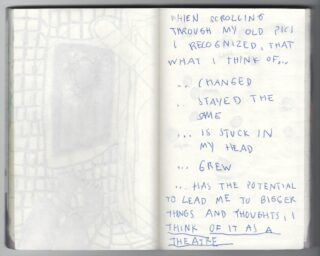 WHEN SCROLLING
THROUGH MY OLD PICS
I RECOGNIZED, THAT
WHAT I THINK OF...
... CHANGED
... STAYED THE
SAME
... IS STUCK IN
MY HEAD
... GREW
... HAS THE POTENTIAL
TO LEAD ME TO BIGGER
THINGS AND THOUGHTS, I
THINK OF IT AS A
THEATRE